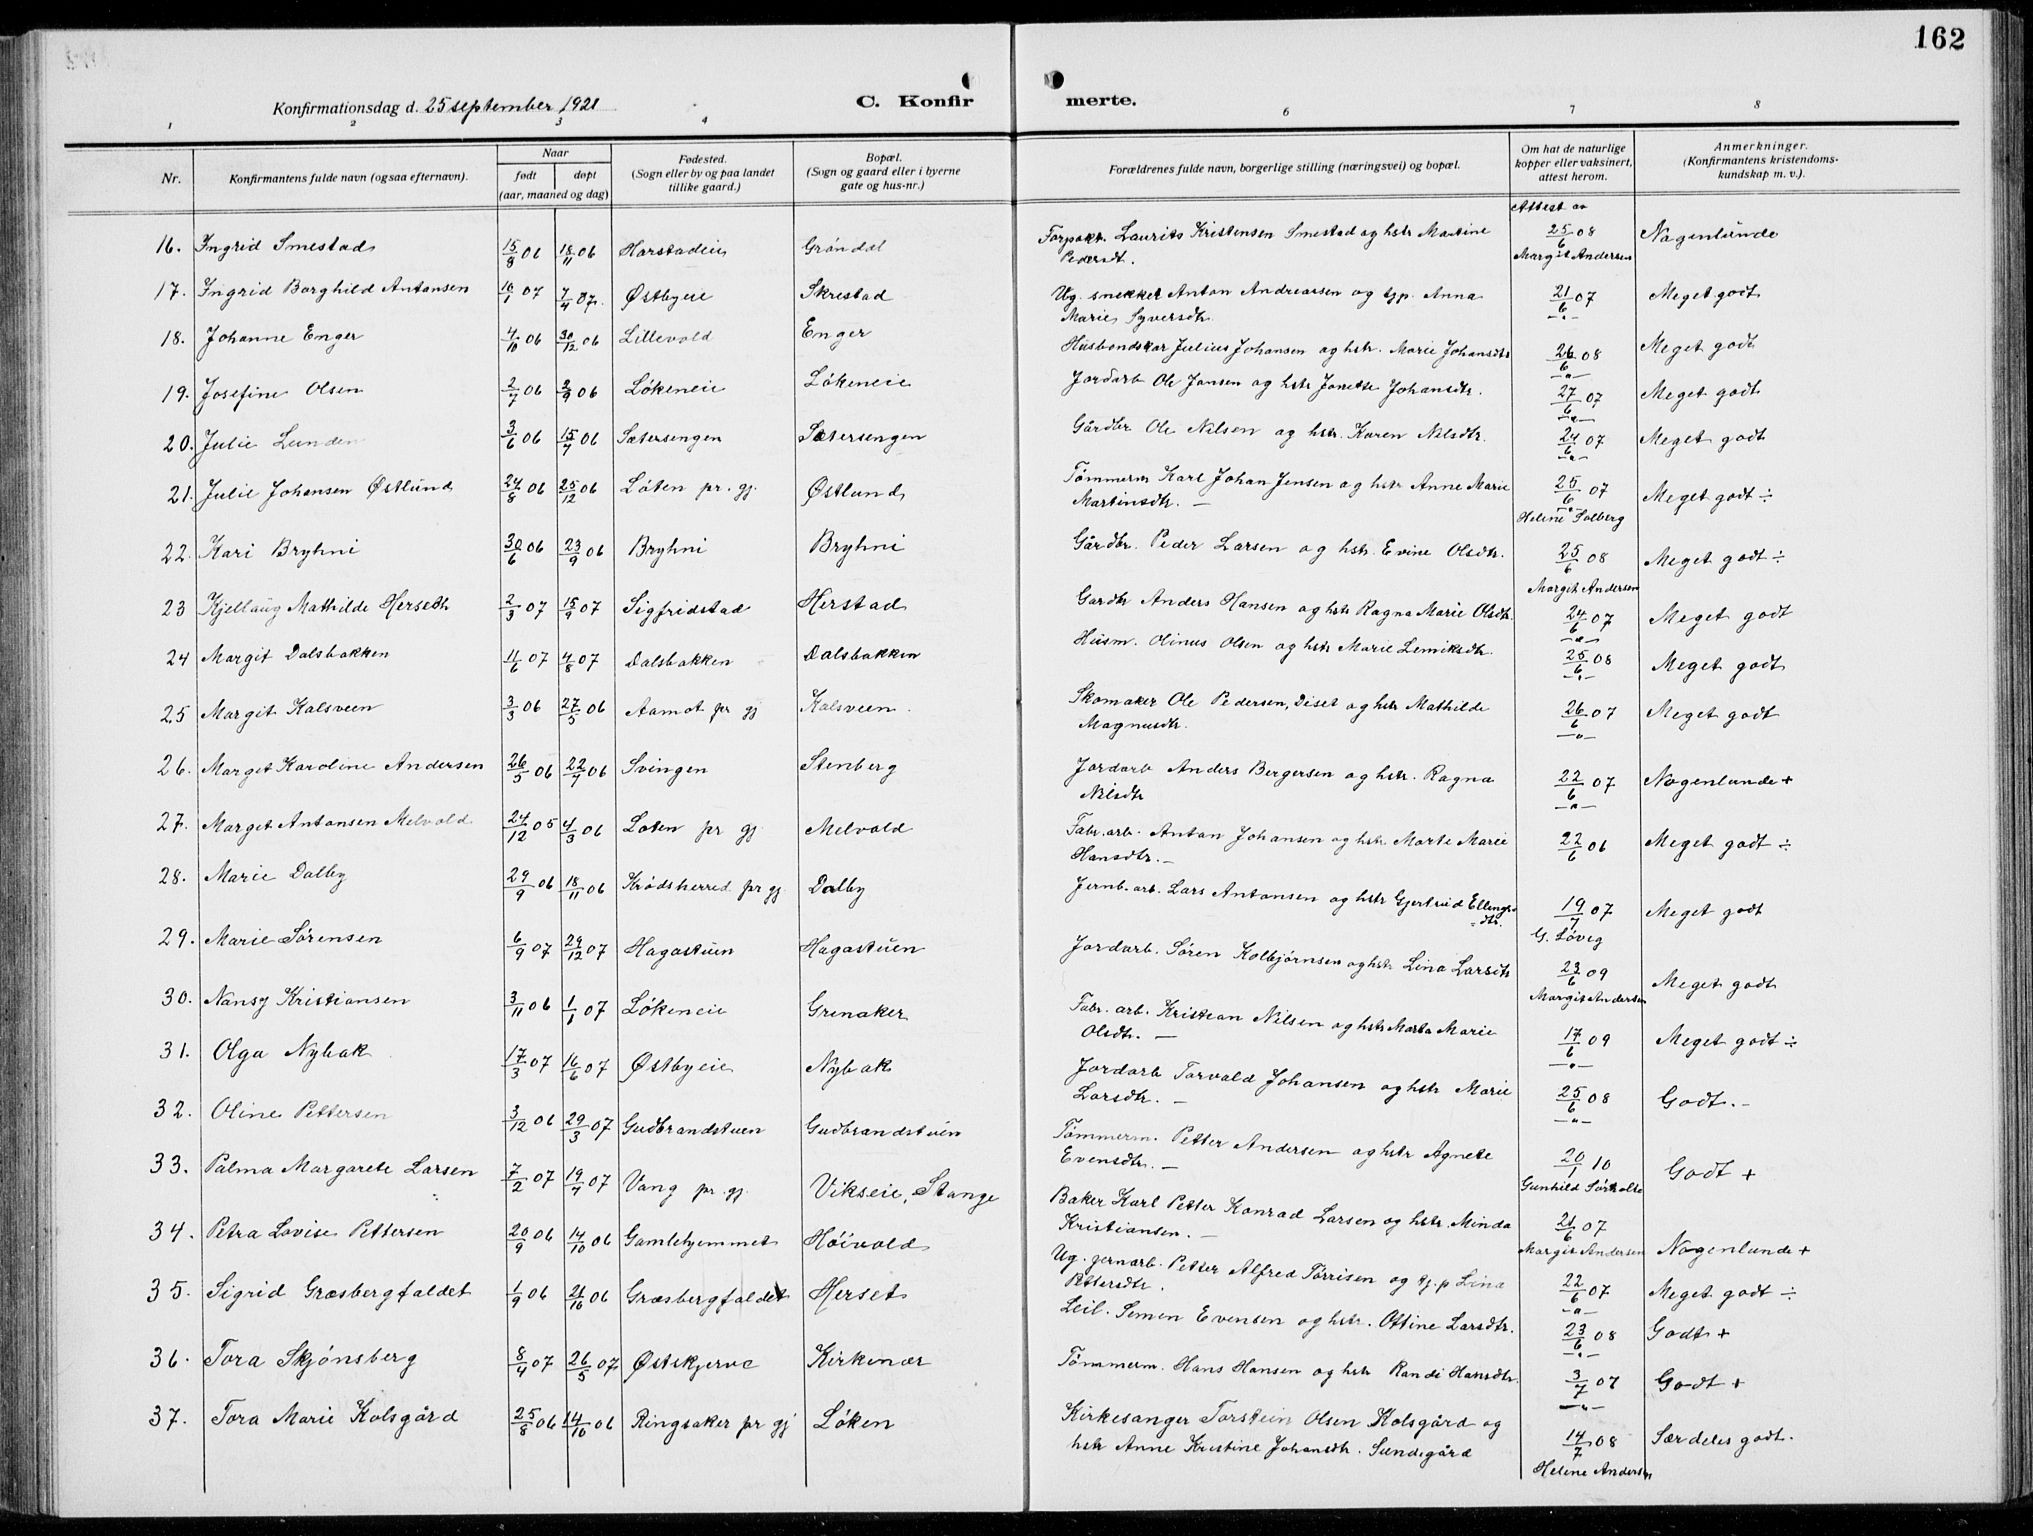 162
Konfirmationsdag d. 25 september 1921
C. Konfir merte.
1 2 3 4 6 7 8
Nr.
Konfirmantens fulde navn (ogsaa efternavn).
Naar
født døpt
(aar, maaned og dag)
Fødested.
(Sogn eller by og paa landet
tillike gaard.)
Bopæl.
(Sogn og gaard eller i byerne
gate og hus-nr.)
Forældrenes fulde navn, borgerlige stilling (næringsvei) og bopæl.
Om hat de naturlige
kopper eller vaksinert,
attest herom.
Anmerkninger.
(Konfirmantens kristendoms-
kundskap m. v.).
Attest av
16. Ingrid Smestad 15/8 06 18/11 06 Harstadeie Gröndal Forpakt. Laurits Kristensen Smestad og hstr Martine 25/6 08 Nogenlunde
Pedersdt. Margit Andersen
17. Ingrid Borghild Antonsen 10/1 07 7/4 07. Østbyeie Skrestad Ug. snekker Anton Andreassen og tjp. Anna 21/6 07 Meget godt
Marie Syversdtr. -"-
18. Johanne Enger 4/10 06 30/12 06 Lillevold Enger Husbondskar Julius Johansen og hstr. Marie Johansdtr 26/6 08 Meget godt
-"-
19. Josefine Olsen 2/7 06 2/9 06 Lökeneie Lökeneie Jordarb Ole Jansen og hstr Janette Johansdtr. 27/6 07 Meget godt
-"-
20. Julie Lunden 3/6 06 15/7 06 Sætersengen Sætersengen Gårdbr Ole Nilsen og hstr. Karen Nilsdtr. 24/6 07 Meget godt
-"-
21. Julie Johansen Østlund 24/8 06 25/12 06 Löten pr. gj. Østlund Tömmerm Karl Johan Jensen og hstr Anne Marie 25/6 07 Meget godt ÷
Martinsdtr. — -"-
Helene Solberg
22. Kari Bryhni 30/6 06 23/9 06 Bryhni Bryhni Gårdbr. Peder Larsen og hstr. Evine Olsdtr. 25/6 08 Meget godt ÷
Margit Andersen
23 Kjellaug Mathilde Herseth 2/3 07 15/9 07 Sigfridstad Herstad Gardbr Anders Hansen og hstr Ragna Marie Olsdtr. 24/6 07 Meget godt
-"-
24 Margit Dalsbakken 11/6 07 4/8 07 Dalsbakken Dalsbakken Husm. Olinus Olsen og hstr Marie Lemiksdtr. 25/6 08 Meget godt
-"-
25 Margit Kalsveen 3/3 06 27/5 06 Aamot pr gj Kalsveen. Skomaker Ole Pedersen, Diset og hstr Mathilde 26/6 07 Meget godt
Magnusdtr. -"-
26. Marget Karoline Andersen 26/5 06 22/7 06 Svingen Stenberg Jordarb Anders Bergersen og hstr. Ragna 22/6 07 Nogenlunde +
Nilsdtr -"-
27. Marget Antonsen Melvold 24/12 05 4/3 06 Löten pr gj. Melvold Fabr. arb. Anton Johansen og hstr. Marte Marie 22/6 06 Meget godt ÷
Hansdtr. —
28. Marie Dalby 29/9 06 18/11 06 Krødsherred pr gj. Dalby Jernb. arb. Lars Antonsen og hstr Gjertrud Ellings- 19/7 07 Meget godt
dtr. G. Lövig
29. Marie Sörensen 6/9 07 29/12 07 Hagastuen Hagastuen Jordarb. Sören Kolbjörnsen og hstr Lina Larsdtr 23/6 09 Meget godt
Margit Andersen
30. Nansy Kristiansen 3/11 06 1/1 07 Lökeneie Grenaker Fabr. arb. Kristian Nilsen og hstr Marta Marie 17/6 09 Meget godt ÷
Olsdtr. — -"-
31. Olga Nybak 17/3 07 16/6 07 Østbyeie Nybak Jordarb Torvald Johansen og hstr Marie 25/6 08 Godt. -
Larsdtr. — -"-
32. Oline Pettersen 3/12 06 29/3 07 Gudbrandstuen Gudbrandstuen Tömmerm. Petter Andersen og hstr Agnete 20/1 10 Godt +
Evensdtr. — Gunhild
33. Palma Margarete Larsen 7/2 07 19/4 07 Vang pr. gj. Vikseie, Stange Baker Karl Petter Konrad Larsen og hstr. Minda 21/6 07 Nogenlunde +
Kristiansen. — Margit Andersen
34. Petra Lovise Pettersen 20/9 06 14/10 06 Gamlehjemmet Höivold Ug. jernarb. Petter Alfred Törrisen og tj. p Lina 22/6 07 Meget godt ÷
Pettersdtr. -"-
35. Sigrid Græsbergfaldet 1/9 06 21/10 06 Græsbergfaldet Herset Leil. Semen Evensen og hstr. Ottine Larsdtr. 23/6 08 Godt +
-"-
36. Tora Skjönsberg 8/4 07 26/5 07 Østskjerve Kirkenær Tömmerm. Hans Hansen og hstr Randi Hansdtr. 3/7 07 Godt +
-"-
37. Tora Marie Kolsgård 25/8 06 14/10 06 Ringsaker pr gj Löken Kirkesanger Torstein Olsen Kolsgård og 14/7 08 Særdeles godt.
hstr Anne Kristine Johansdtr. Sundsgård Helene Andersen